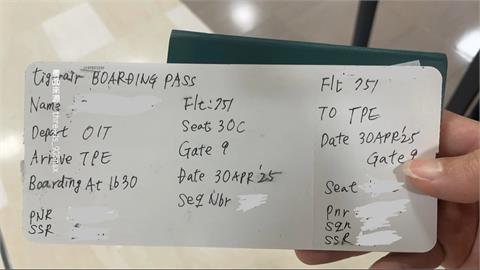 tigerair BOARDING PASS
Name
Depart OIT
Arrive TPE
Boarding At 1630
PNR
SSR
Flt: 251
Seat 30C
Gate 9
Date 30APR'25
Seq Nbr
Flt 251
TO TPE
Date 30APR'25
Gate 9
Seat
Pnr
sqn
SSR